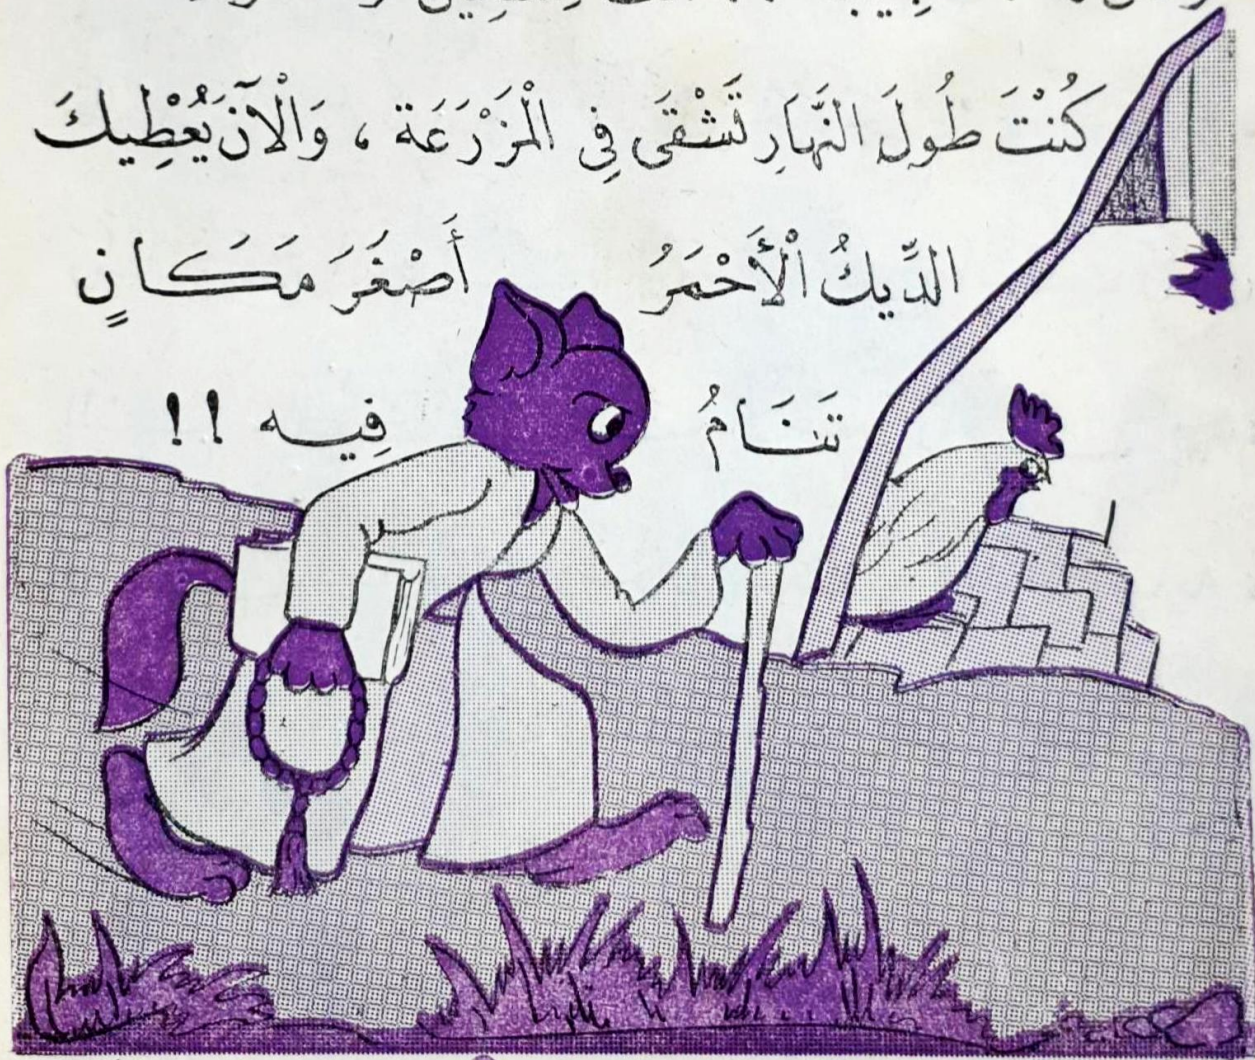 كُنْتَ طُولَ النَّهَارِ تَشْقَى فِي الْمَزْرَعَة ، وَالْآنَ يُعْطِيكَ
الدِّيكُ الْأَحْمَرُ أَصْغَرَ مَكَانٍ
تَنَامُ فِيه !!